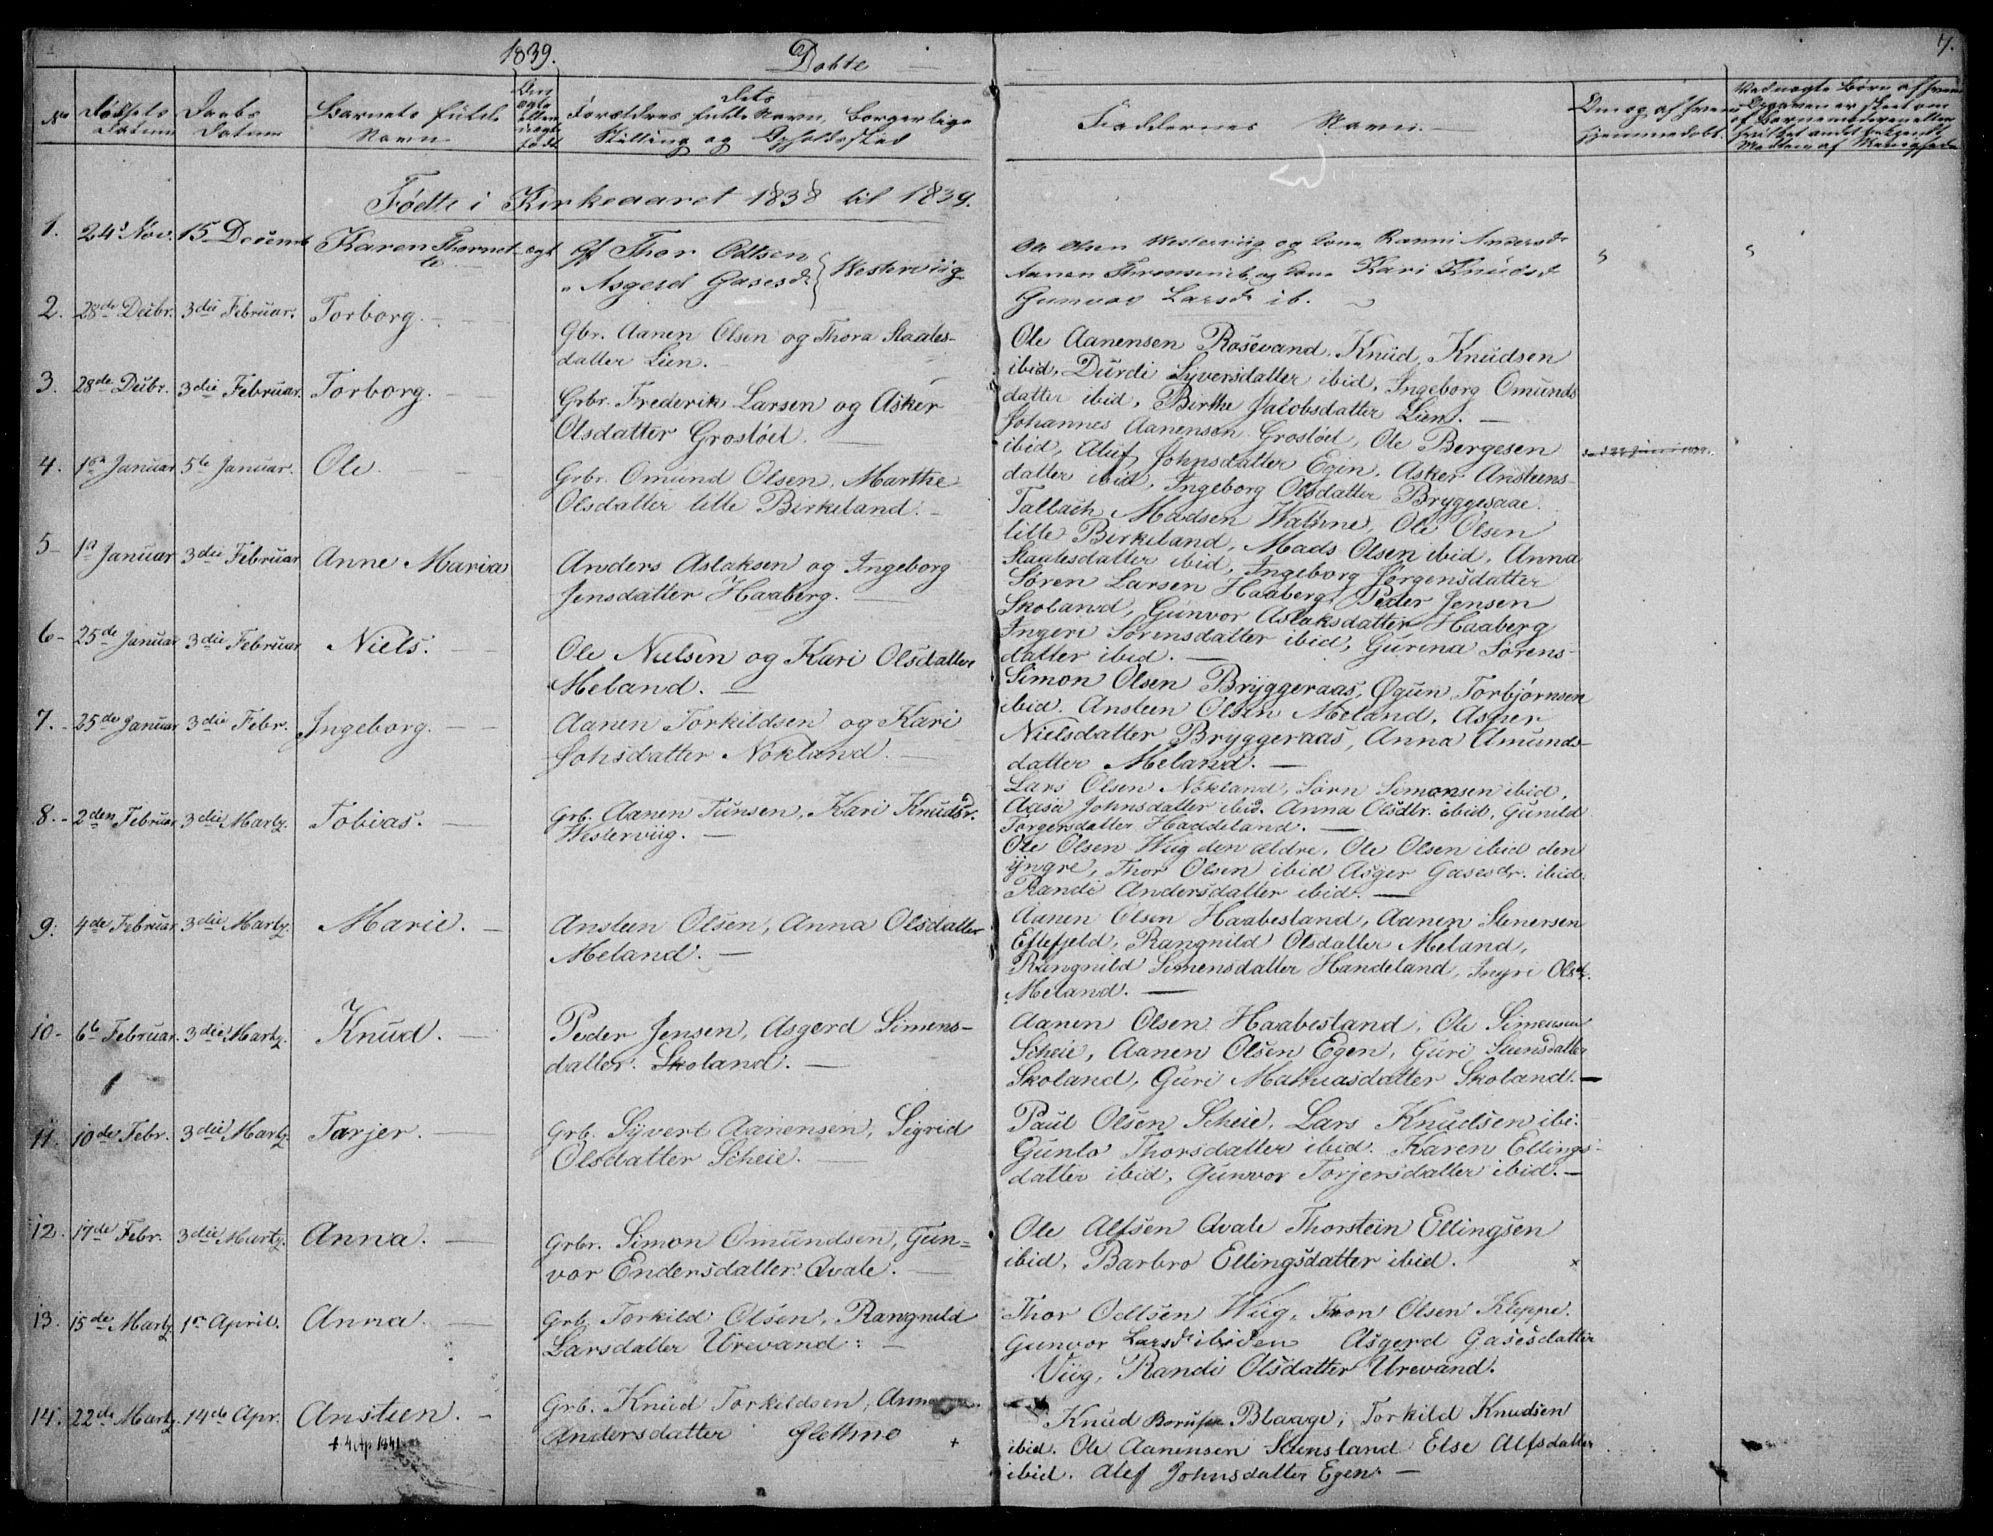 1839.
Døbte
7.
No
Fødsels Datum
Daabs Datum
Barnets fulde Navn
Om ægte eller uægte født
Forældres fulde Navn, borgerlige
Stilling og Opholdssted
Faddernes Navn.
Om og af hvem hjemmedøbt.
Født i Kirkeaaret 1838 til 1839.
1. 24de Nov. 15 Decemb Karen Thornet- ægt
gf Thor Odtsen
" Asgerd Gasesd. } Westerviig
Ole Olsen Westerviig og Kone Ranni Andersdr
Aanen Thronsen ib. og Kone Kari Knudsd
Gunvor Larsdr ib.
2. 28de Decbr. 3die Februar. Torborg.
Gbr. Aanen Olsen og Thora Staales-
datter Lien.
Ole Aanensen Rosevand. Knud Knudsen
ibid, Durdi Syversdatter ibid, Ingeborg Omunds
datter ibid, Birthe Jacobsdatter Lien.
3. 28de Decbr. 3die Februar. Torborg.
Grbr. Frederik Larsen og Asker
Olsdatter Grostøel.
Johannes Aanensen Grostøel, Ole Bergesen
ibid, Aluf Johnsdatter Egin, Asker Ansteens-
datter ibid, Ingeborg Olsdatter Bryggesaae.
4. 1ste Januar 5te Januar. Ole.
Grbr. Omund Olsen. Marthe
Olsdatter lille Birkeland.
Tallach Madsen Wathne, Ole Olsen
lille Birkeland, Mads Olsen ibid, Anna
Staalesdatter ibid, Ingeborg Jørgensdatter
5 1st Januar 3die Februar Anne Maria
Anders Aslaksen og Ingeborg
Jensdatter Haaberg.
Søren Larsen Haaberg, Peder Jensen
Skoland, Gunvor Aslaksdatter Haaberg
Ingeri Sørensdatter ibid, Gurina Sørens-
datter ibid.
6 25de Januar 3die Februar Niels.
Ole Nielsen og Kari Olsdatter
Meland.
Simon Olsen Bryggeraas, Øgun Torbjørnsen
ibid. Ansteen Olsen Meland, Asper
Nielsdatter Bryggeraas, Anna Amunds-
datter Meland.
7. 25de Januar 3die Febr. Ingeborg.
Aanen Torkildsen og Kari
Johsdatter Nökland.
Lars Olsen Nökland, Sørn Simonsen ibid,
Aasa Johnsdatter ibid. Anna Olsdtr. ibid, Gunild
Torgersdatter Haddeland.
8. 2den Februar 3die Martz. Tobias.
Grb. Aanen Tunsen, Kari Knudsdr.
Westerviig.
Ole Olsen Wiig den ældre, Ole Olsen ibid den
yngre, Thor Olsen ibid Asger Gasesdr. ibid.
Randi Andersdatter ibid.
9. 4de Februar 3die Martz. Marie.
Ansteen Olsen, Anna Olsdatter
Meland.
Aanen Olsen Haabesland, Aanen Stenersen
Eftefjeld, Rangnild Olsdatter Meland,
Rangnild Simensdatter Handeland, Ingri Olsdr.
Meland.
10 6te Februar. 3die Martz. Knud.
Peder Jensen, Asgerd Simens-
datter. Skoland.
Aanen Olsen Haabesland, Ole Simensen
Scheie, Aanen Olsen Egen, Guri Stensdatter
Skoland, Guri Mathiasdatter Skoland.
11. 10de Febr. 3die Martz. Tarjer.
Grb. Syvert Aanensen, Sigrid
Olsdatter Scheie.
Paul Olsen Scheie, Lars Knudsen ibi.
Gunlo Thorsdatter ibid. Karen Ellings-
datter ibid, Gunvor Torjersdatter ibid.
12. 17de Febr. 3die Martz. Anna.
Grbr. Simon Omundsen, Gun=
vor Endersdatter. Qvale.
Ole Alfsen Qvale Thorstein Ellingsen
ibid, Barbro Ellingsdatter ibid. x
13. 15de Martz. 1st April. Anna.
Grb. Torkild Olsen, Rangnild
Larsdatter Urevand.
Thor Odtsen Wiig, Tron Olsen Kleppe.
Gunvor Larsdr ibiden Asgerd Gasesdatter
Viig, Randi Olsdatter Urevand.
14. 22de Martz. 14de Apr. Anstien.
+ 4 Ap 1841
Grb. Knud Torkildsen, Anna
Andersdatter Glethne +
Knud Blaage; Torkild Knudsen
ibid. Ole Aanensen Stensland Else Alfsdatter
ibid. Alef Johnsdatter Egen.